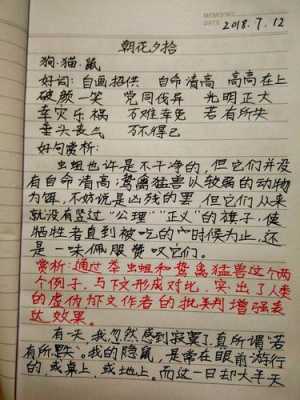 MEMO NO.
DATE 2018.7.12
朝花夕拾
狗·猫·鼠
好词：自画招供 自命清高 高高在上
破颜一笑 党同伐异 光明正大
幸灾乐祸 万难幸免 若有所失
垂头丧气 万不得已
好句赏析：
虫蛆也许是不干净的，但它们并没
有自命清高；鸷禽猛兽以较弱的动物
为饵，不妨说是凶残的罢，但它们从来
就没有竖过“公理”“正义”的旗子，使
牺牲者直到被吃的时候为止，还
是一味佩服赞叹它们。
赏析：通过举虫蛆和鸷禽猛兽这个两
个例子，与下文形成对比，突出了人类
的虚伪，作文作者的批判，增强表
达效果。
有一天，我忽然感到寂寞了，真所谓“若
有所失”。我的隐鼠，是常在眼前游行
的，或桌上，或地上。而这一日却大半天